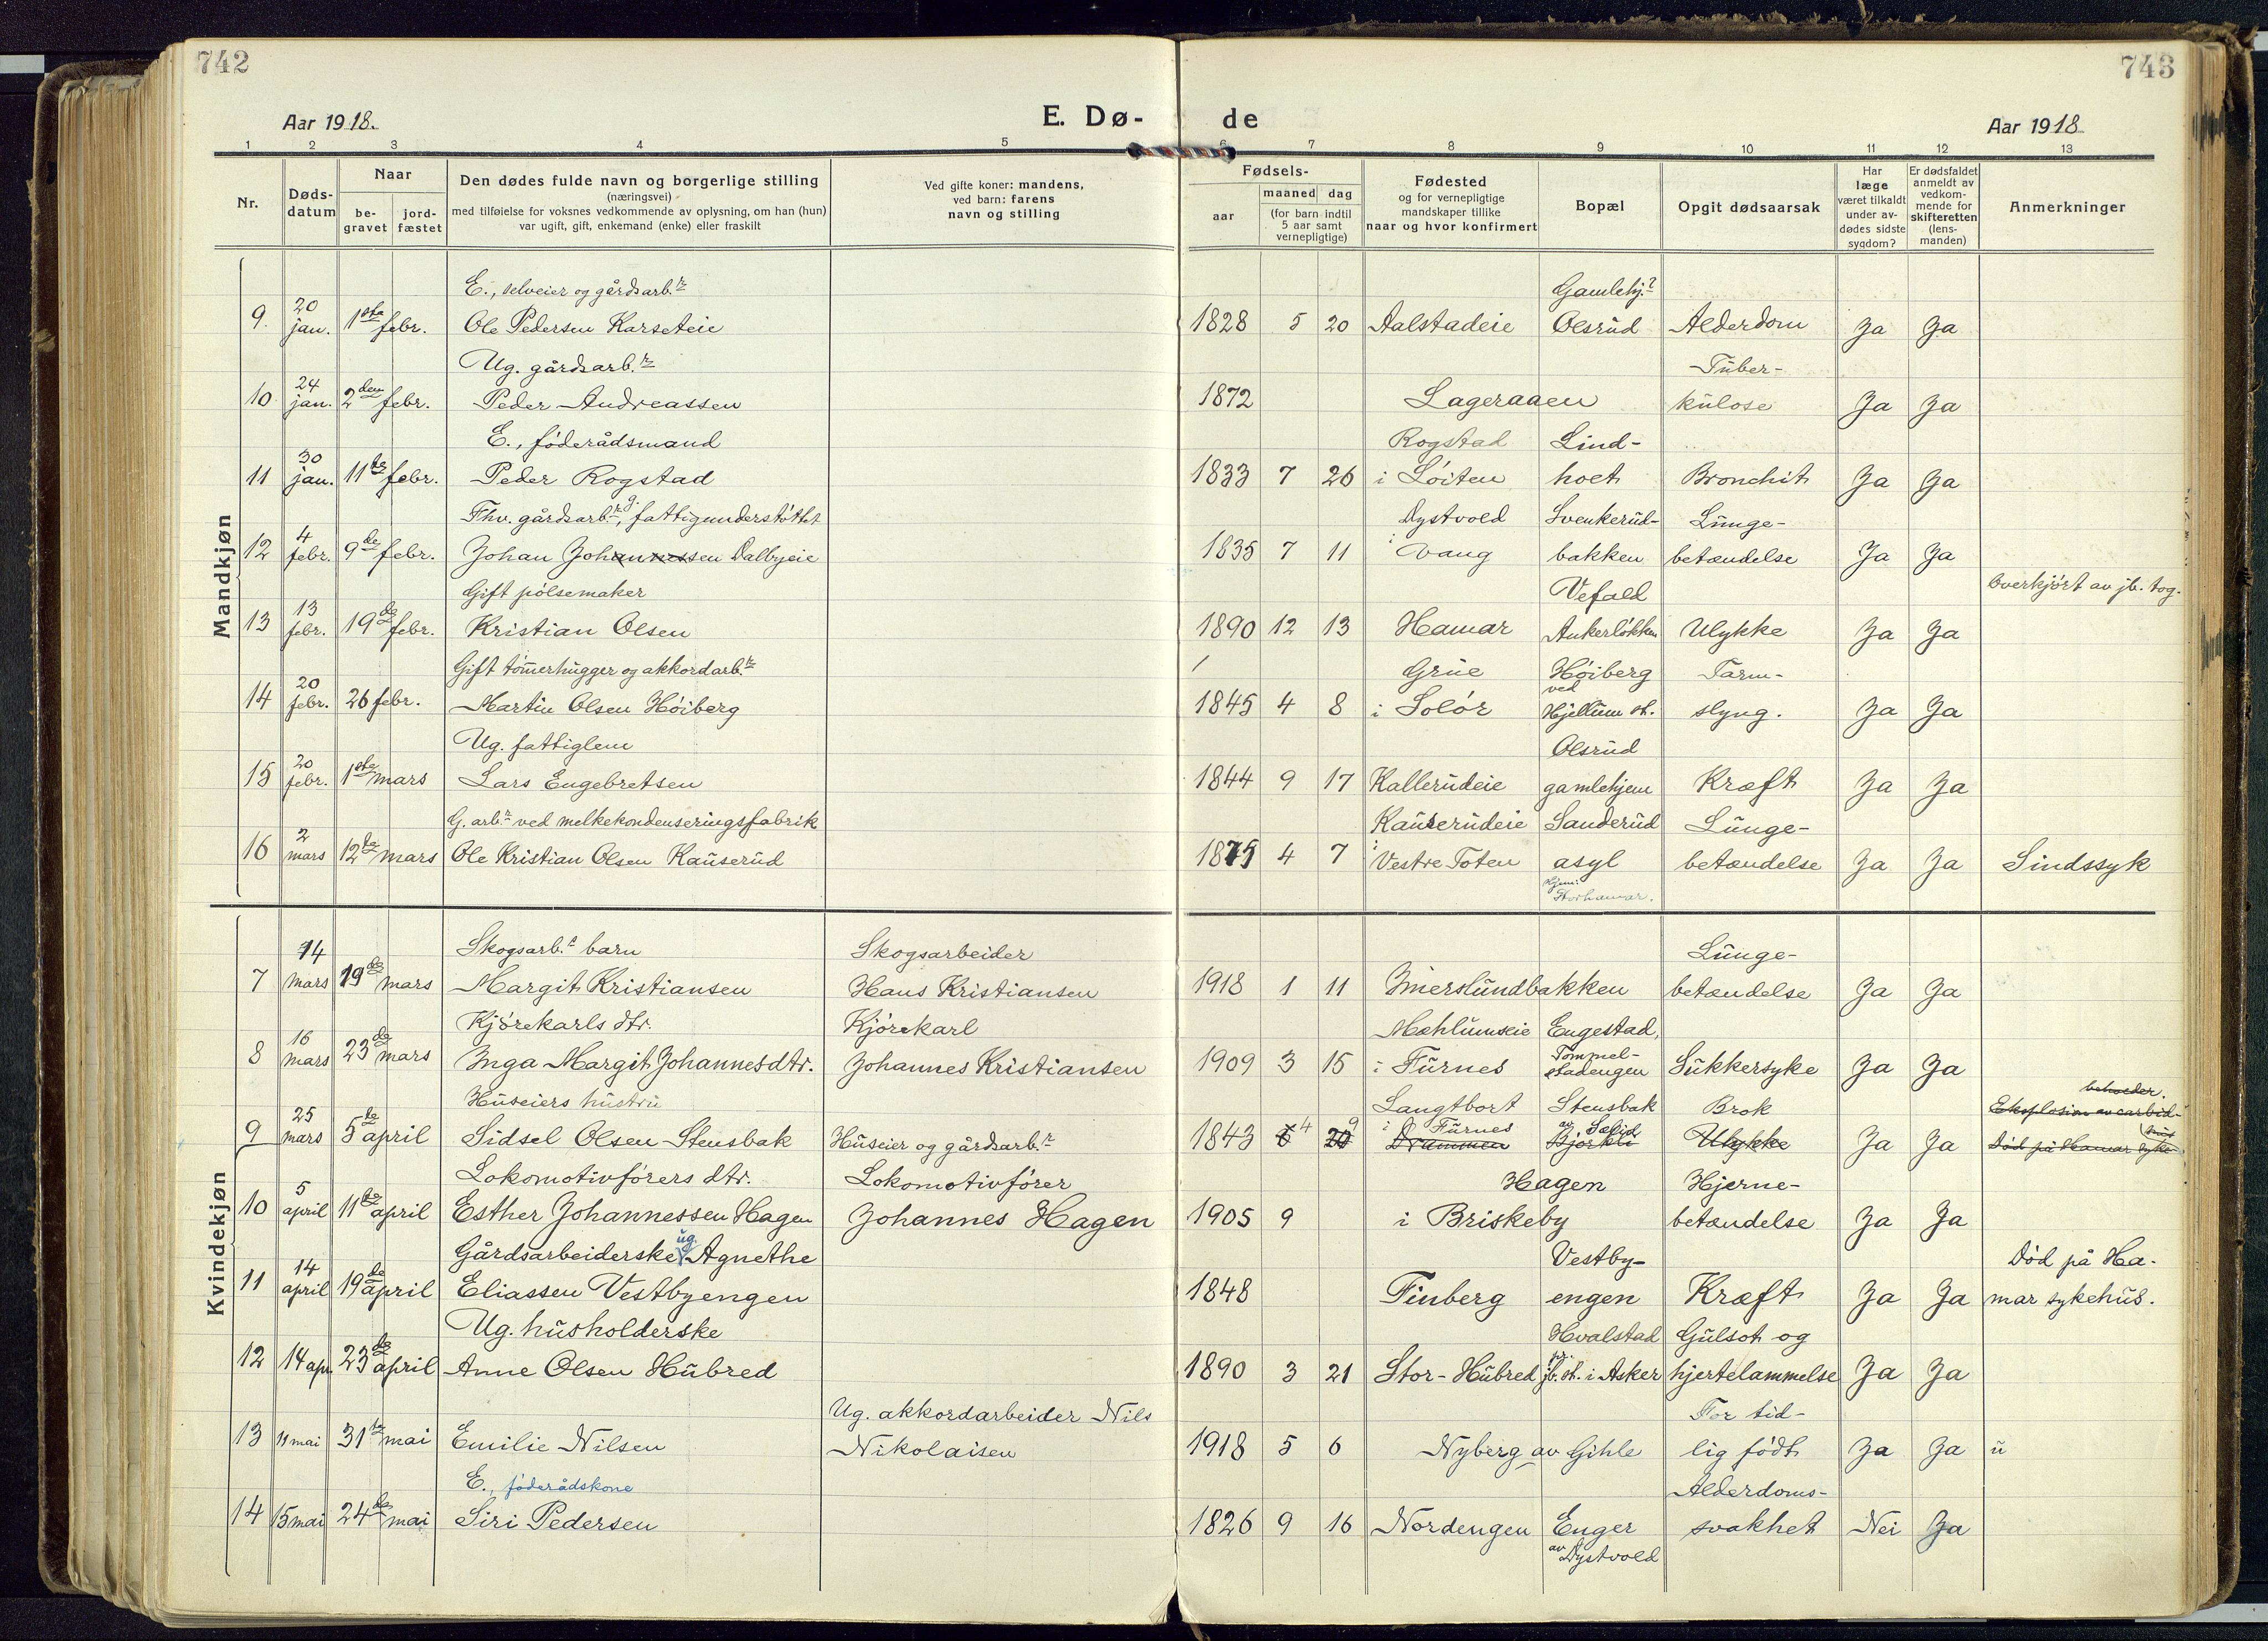 742
743
Aar 1918.
E. Dø-
de
Aar 1918
1 2 3 4 5 6 7 8 9 10 11 12 13
Nr.
Døds-
datum
Naar
be-
gravet
jord-
fæstet
Den dødes fulde navn og borgerlige stilling
(næringsvei)
med tilføielse for voksnes vedkommende av oplysning, om han (hun)
var ugift, gift, enkemand (enke) eller fraskilt
Ved gifte koner: mandens,
ved barn: farens
navn og stilling
Fødsels-
aar
maaned dag
(for barn indtil
5 aar samt
vernepligtige)
Fødested
og for vernepligtige
mandskaper tillike
naar og hvor konfirmert
Bopæl
Opgit dødsaarsak
Har
læge
været tilkaldt
under av-
dødes sidste
sygdom?
Er dødsfaldet
anmeldt av
vedkom-
mende for
skifteretten
(lens-
manden)
Anmerkninger
Mandkjøn
E., selveier og gårdsarb.r Gamlehj.?
9. 20 jan. 1ste febr. Ole Pedersen Karseteie 1828 5 20 Aalstadeie Olsrud Alderdom Ja Ja
Ug. gårdsarb.r Tuber-
10 24 jan. 2den febr. Peder Andreassen 1872 Lageraaen kulose Ja Ja
E., føderådsmand Rogstad Lind-
11 30 jan. 11te febr. Peder Rogstad 1833 7 26 i Løiten hoet Bronchit Ja Ja
Fhv. gårdsarb.r, g. fattigunderstøttet Dystvold Svenkerud- Lunge-
12 4 febr. 9de febr. Johan Johannessen Dalbyeie 1835 7 11 i Vang bakken betændelse Ja Ja
Gift pølsemaker Vefald Overkjørt av jb. tog.
13 13 febr. 19de febr. Kristian Olsen 1890 12 13 Hamar Ankerløkken Ulykke Ja Ja
Gift tømerhugger og akkordarb.r Grue Høiberg Tarm-
14 20 febr. 26 febr. Martin Olsen Høiberg 1845 4 8 i Solør ved Hjellum st. slyng. Ja Ja
Ug. fattiglem Olsrud
15 20 febr. 1ste mars Lars Engebretsen 1844 9 17 Kallerudeie gamlehjem Kræft Ja Ja
G. arb.r ved melkekondenseringsfabrik Kauserudeie Sanderud Lunge-
16 2 mars 12te mars Ole Kristian Olsen Kauserud 1875 4 7 i Vestre Toten asyl betændelse Ja Ja Sindssyk
Hjem:
Storhamar.
Kvindekjøn
Skogsarb.s barn Skogsarbeider Lunge-
7 14 mars 19de mars Margit Kristiansen Hans Kristiansen 1918 1 11 Imerslundbakken betændelse Ja Ja
Kjørekarls dtr. Kjørekarl Mæhlumseie Engestad,
8 16 mars 23de mars Inga Margit Johannesdtr. Johannes Kristiansen 1909 3 15 i Furnes Tommel-stadengen Sukkersyke Ja Ja
Huseiers hustru Langtbort Stensbak Brok beholder.
Eksplosion av carbid-
9 25 mars 5te april Sidsel Olsen Stensbak Huseier og gårdsarb.r 1843 6 4 20 9 i Furnes Drammen av Sælid Bjørkli Ulykke Ja Ja Død på Hamar syke hus
Lokomotivførers dtr. Lokomotivfører Hagen Hjerne-
10 5 april 11te april Esther Johannessen Hagen Johannes Hagen 1905 9 i Briskeby betændelse Ja Ja
Gårdsarbeiderske ug. Agnethe Vestby- Død på Ha-
11 14 april 19de april Eliassen Vestbyengen 1848 Finberg engen Kræft Ja Ja mar sykehus.
Ug. husholderske Hvalstad Gulsot og
12 14 apr. 23de april Anne Olsen Hubred 1890 3 21 Stor-Hubred pr. jb. st. i Asker hjertelammelse Ja Ja
Ug. akkordarbeider Nils For tid-
13 11 mai 31te mai Emilie Nilsen Nikolaisen 1918 5 6 Nyberg av Gihle lig født Ja Ja u
E., føderådskone Alderdoms-
14 15 mai 24de mai Siri Pedersen 1826 9 16 Nordengen Enger svakhet Nei Ja
av Dystvold